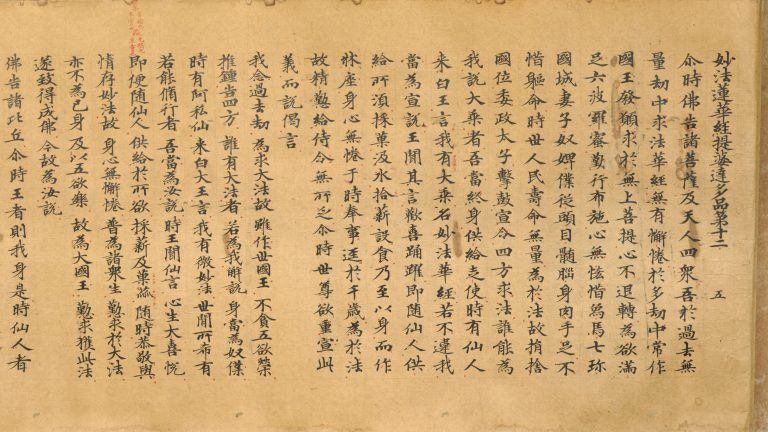 妙法蓮華經提婆達多品第十二 五
尒時佛告諸菩薩及天人四衆吾於過去無
量劫中求法華經無有懈惓於多劫中常作
國王發願求於無上菩提心不退轉為欲滿
足六波羅蜜勤行布施心無悋惜象馬七珎
國城妻子奴婢僕從頭目髓腦身肉手足不
惜軀命時世人民壽命無量為於法故捎捨
國位委政太子擊鼓宣令四方求法誰能為
我說大乘者吾當終身供給走使時有仙人
来白王言我有大乘名妙法華經若不違我
當為宣說王聞其言歡喜踊躍即随仙人供
給所湏採菓汲水拾薪設食乃至以身而作
牀座身心無惓于時奉事逕於千歲為於法
故精勤給侍令無所乏尒時世尊欲重宣此
義而說偈言
我念過去劫 為求大法故 雖作世國王 不貪五欲樂
推鍾告四方 誰有大法者 若為我解說 身當為奴僕
時有阿私仙 来白大王言 我有微妙法 世間所希有
若能脩行者 吾當為汝說 時王聞仙言 心生大喜悅
即便随仙人 供給於所欲 採薪及菓蓏 随時恭敬與
情存妙法故 身心無懈惓 普為諸衆生 勤求於大法
亦不為己身 及以五欲樂 故為大國王 勤求獲此法
遂致得成佛 今故為汝說
佛告諸比丘尒時王者則我身是時仙人者